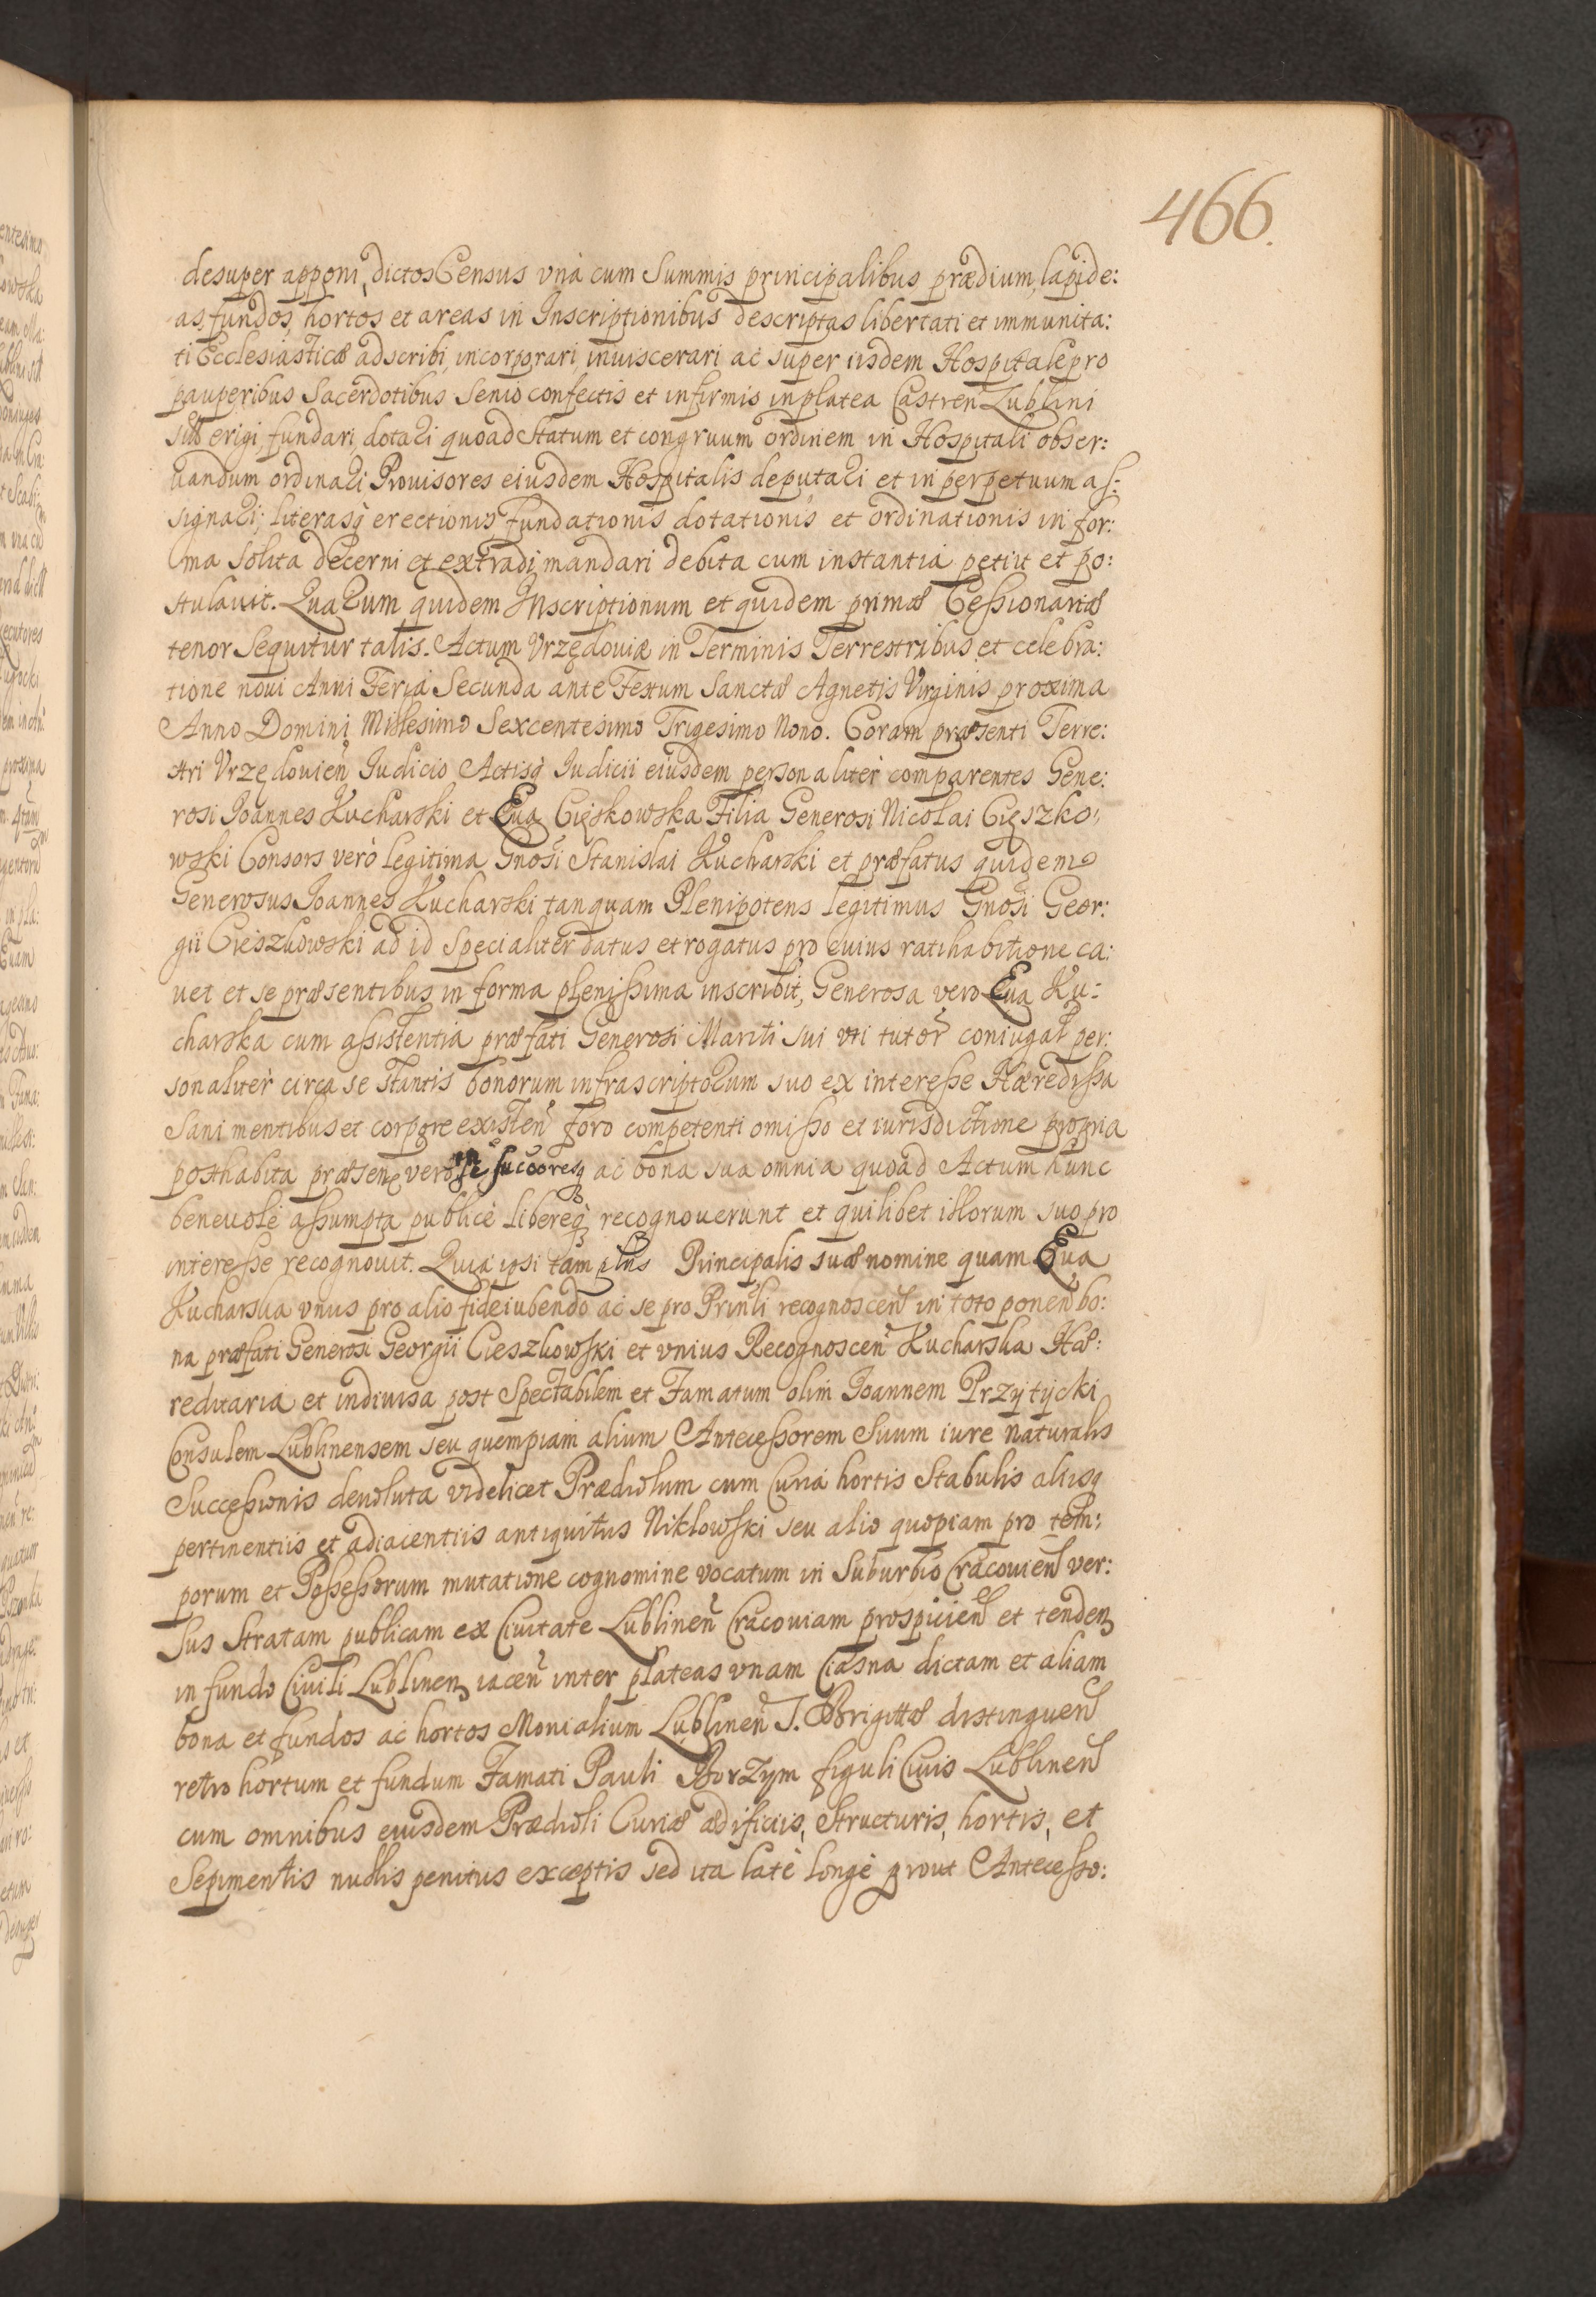 466.
desuper apponi, dictos Census vnà cum Summis principalibus prædium, lapide:
as, fundos, hortos et areas in Inscriptionibus descriptas libertati et immunita:
ti Ecclesiasticæ adscribi, incorporari, inuiscerari ac super iisdem Hospitale pro
pauperibus Sacerdotibus senio confectis et infirmis in platea Castren Lublini
sitæ erigi, fundari dotari quoad Statum et congruum ordinem in Hospitali obser:
uandum ordinari Prouisores eiusdem Hospitalis deputari et in perpetuum as:
signari; literasq erectionis fundationis dotationis et ordinationis in for:
ma solita decerni et extradi mandari debita cum instantia petiit et po:
stulauit. Quarum quidem Inscriptionum et quidem primæ Cessionariæ
tenor sequitur talis. Actum Vrzędouiæ in Terminis Terrestribus et celebra:
tione noui Anni Feria Secunda ante Festum Sanctæ Agnetis Virginis proxima
Anno Domini Millesimo Sexcentesimo Trigesimo Nono. Coram præsenti Terre:
stri Vrzędouien Iudicio Actisq Iudicii eiusdem personaliter comparentes Gene:
rosi Joannes Kucharski et Eua Cięskowska Filia Generosi Nicolai Cięszko:
wski Consors verò legitima Gnosi Stanislai Kucharski et præfatus quidem
Generosus Joannes Kucharski tanquam Plenipotens legitimus Gnosi Geor:
gii Cieszkowski ad id specialiter datus et rogatus pro cuius ratihabitione ca:
uet et se præsentibus in forma plenissima inscribit, Generosa vero Eua Ku:
charska cum assistentia præfati Generosi Mariti sui vti tutor coniugal per:
sonaliter circa se stantis bonorum infrascriptorum suo ex interesse Hæredissa
Sani mentibus et corpore existen foro competenti omisso et iurisdictione propria
posthabita præsen vero in se succoresq ac bona sua omnia quoad Actum hunc
beneuolè assumpta publicè libereq recognouerunt et quilibet illorum suo pro
interesse recognouit. Quia ipsi tam plns Principalis suæ nomine quam Eua
Kucharska vnus pro alio fideiubendo ac se pro Prinli recognoscen in toto ponen bo:
na præfati Generosi Georgii Cieszkowski et vnius Recognoscen Kucharska Hæ:
reditaria et indiuisa post Spectabilem et Famatum olim Joannem Przytycki
Consulem Lublinensem seu quempiam alium Antecessorem Suum iure naturalis
Successionis deuoluta videlicet Prædiolum cum Curia hortis Stabulis aliisq
pertinentiis et adiacentiis antiquitus Niklowski seu alio quopiam pro tem:
porum et Possessorum mutatione cognomine vocatum in Suburbio Cracouien ver:
sus Stratam publicam ex Ciuitate Lublinen Cracouiam prospicien et tenden
in fundo Ciuili Lublinen iacen inter plateas vnam Ciasna dictam et aliam
bona et fundos ac hortos Monialium Lublinen S. Brigittæ distinguen
retro hortum et fundum Famati Pauli Borzym figuli Ciuis Lublinen
cum omnibus eiusdem Prædioli Curiæ ædificiis, Structuris, hortis, et
Sepimentis nullis penitus exceptis sed ita latè longè prout Antecesso: